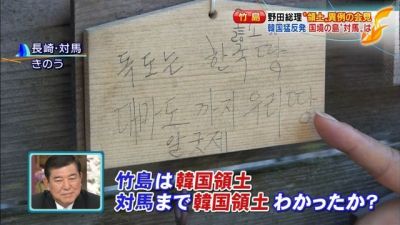 竹島
野田総理“領土”異例の会見
韓国猛反発 国境の島“対馬”は
長崎・対馬
きのう
독도는 한국 땅
대마도 까지 우리 땅
竹島は韓国領土
対馬まで韓国領土 わかったか?